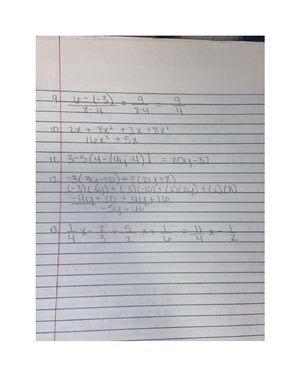 9. (6-(-3))/(8-4) = 9/(8-4) = 9/4
10. 2x + 8x² + 3x + 8x²
16x² + 5x
11. 3-5[4-(4y-4)] = 20y-37
12. -3(3y-10)+2(2y+8)
(-3)(3y)+(-3)(-10)+(2)(2y)+(2)(8)
-9y+30+4y+16
-5y+46
13. 1/4 x - 2/3 + 5/2 x + 1/6 = 11/4 x - 1/2